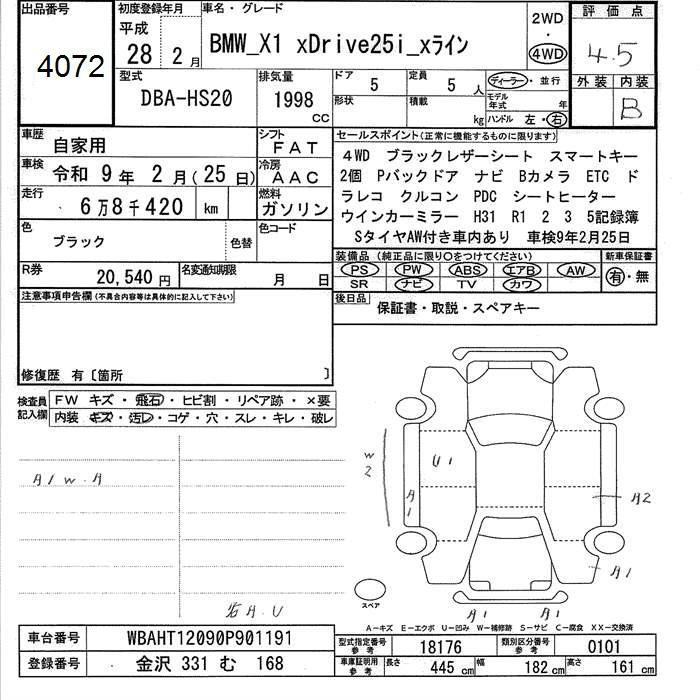 出品番号 初度登録年月 車名・グレード 評価点
4072 平成 28 2月 BMW_X1 xDrive25i_xライン 2WD・4WD 4.5
型式 排気量 ドア 5 定員 5人 ディーラー・並行 外装 内装
DBA-HS20 1998 CC 形状 積載 kg モデル年式 年 ハンドル 左・右 B
車歴 自家用 シフト FAT セールスポイント(正常に機能するものに限ります)
車検 令和 9年 2月(25日) 冷房 AAC 4WD ブラックレザーシート スマートキー
2個 Pバックドア ナビ Bカメラ ETC ド
走行 6万8千420 km 燃料 ガソリン ラレコ クルコン PDC シートヒーター
ウインカーミラー H31 R1 2 3 5記録簿
色 ブラック 色替 色コード SタイヤAW付き車内あり 車検9年2月25日
装備品(純正品に限り○をつけてください) 新車保証書
R券 20,540円 名変通知期限 月 日 PS PW ABS エアB AW 有・無
SR ナビ TV カワ
注意事項申告欄(不具合内容等は具体的に記入して下さい) 後日品 保証書・取説・スペアキー
修復歴 有〔箇所 〕
検査員記入欄 FW キズ・飛石・ヒビ割・リペア跡・×要
内装 キズ・汚レ・コゲ・穴・スレ・キレ・破レ
W2 U1
A1 W.A A1 A2
A1
A.U スペア A1 A1
A-キズ E-エクボ U-凹み W-補修跡 S-サビ C-腐食 XX-交換済
車台番号 WBAHT12090P901191 型式指定番号 参考 18176 類別区分番号 参考 0101
登録番号 金沢 331 む 168 車庫証明用 参考 長さ 445cm 幅 182cm 高さ 161cm